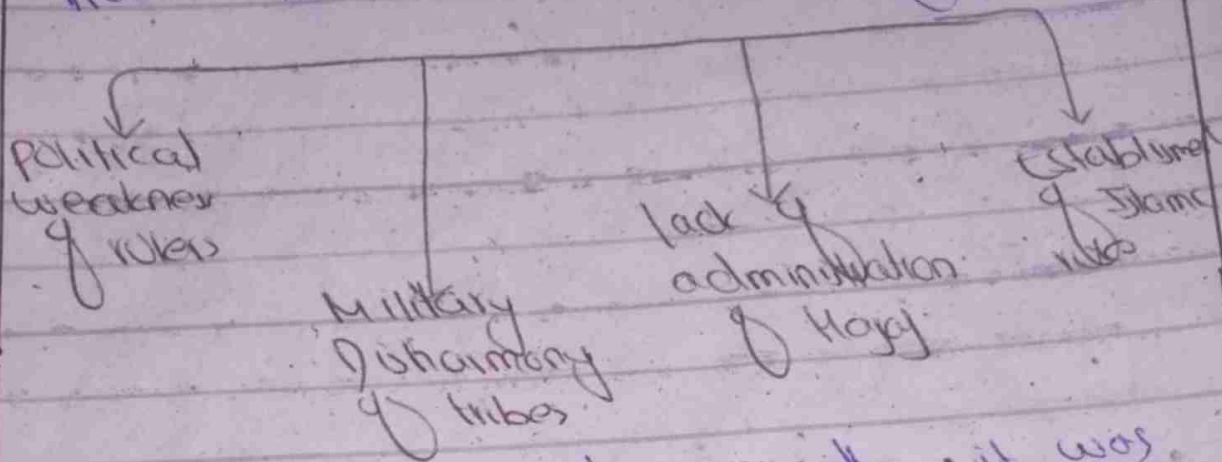 Political
weaknes
of rulers
Military
Disharmony
of tribes
lack of
administration
of Hajaj
of Islamic
rules
it was